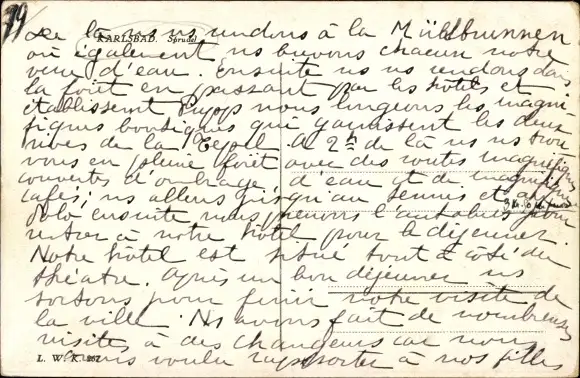 79
KARLSBAD. Sprudel
De là ns ns rendons à la Mühlbrunnen
où également ns buvons chacun notre
verre d'eau. Ensuite ns ns rendons dans
la forêt en passant par les hôtels et
établissent Pupp nous longeons les magni-
fiques boutiques qui garnissent les deux
rives de la Tepel. A 2 de là ns ns trou
vons en pleine forêt avec des routes magnifiques
couvertes d'ombrage, d'eau et de magnifiques
cafés; ns allons jusqu'au tennis et
polo ensuite nous prenons l'autobus pour
rentrer à notre hôtel pour le déjeuner.
Notre hôtel est situé tout à côté du
théatre. Après un bon déjeuner ns
sortons pour finir notre visite de
la ville. Ns avons fait de nombreuses
visites à des changeurs car nous
voulu rapporter à nos filles
L. W. K. 267